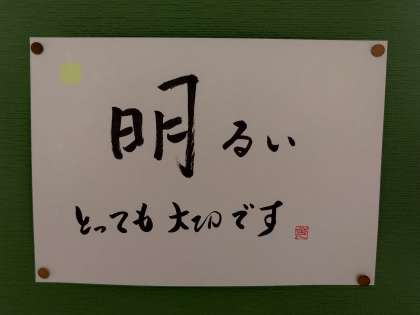 明るい
とっても大切です